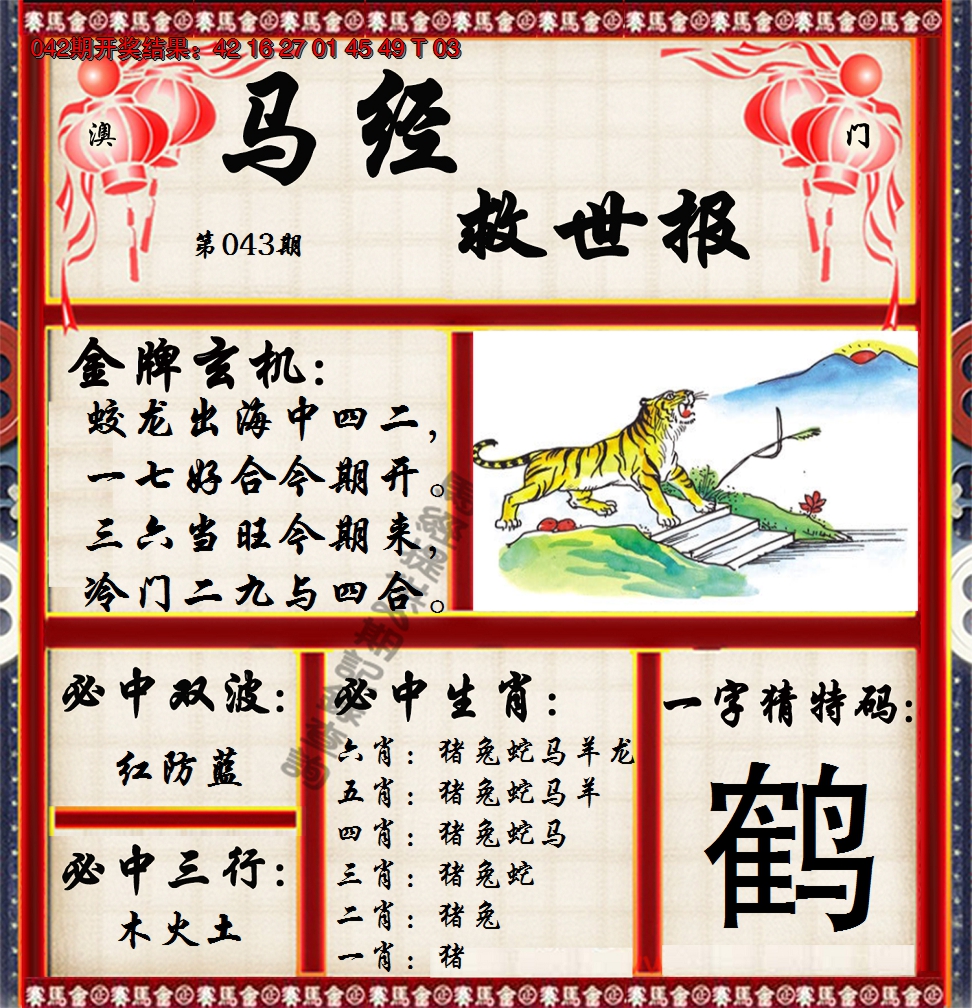 042期开奖结果：42 16 27 01 45 49 T 03
澳
门
马经
救世报
第043期
金牌玄机：
蛟龙出海中四二，
一七好合今期开。
三六当旺今期来，
冷门二九与四合。
必中双波：
红防蓝
必中三行：
木火土
必中生肖：
六肖：猪兔蛇马羊龙
五肖：猪兔蛇马羊
四肖：猪兔蛇马
三肖：猪兔蛇
二肖：猪兔
一肖：猪
一字猜特码：
鹤